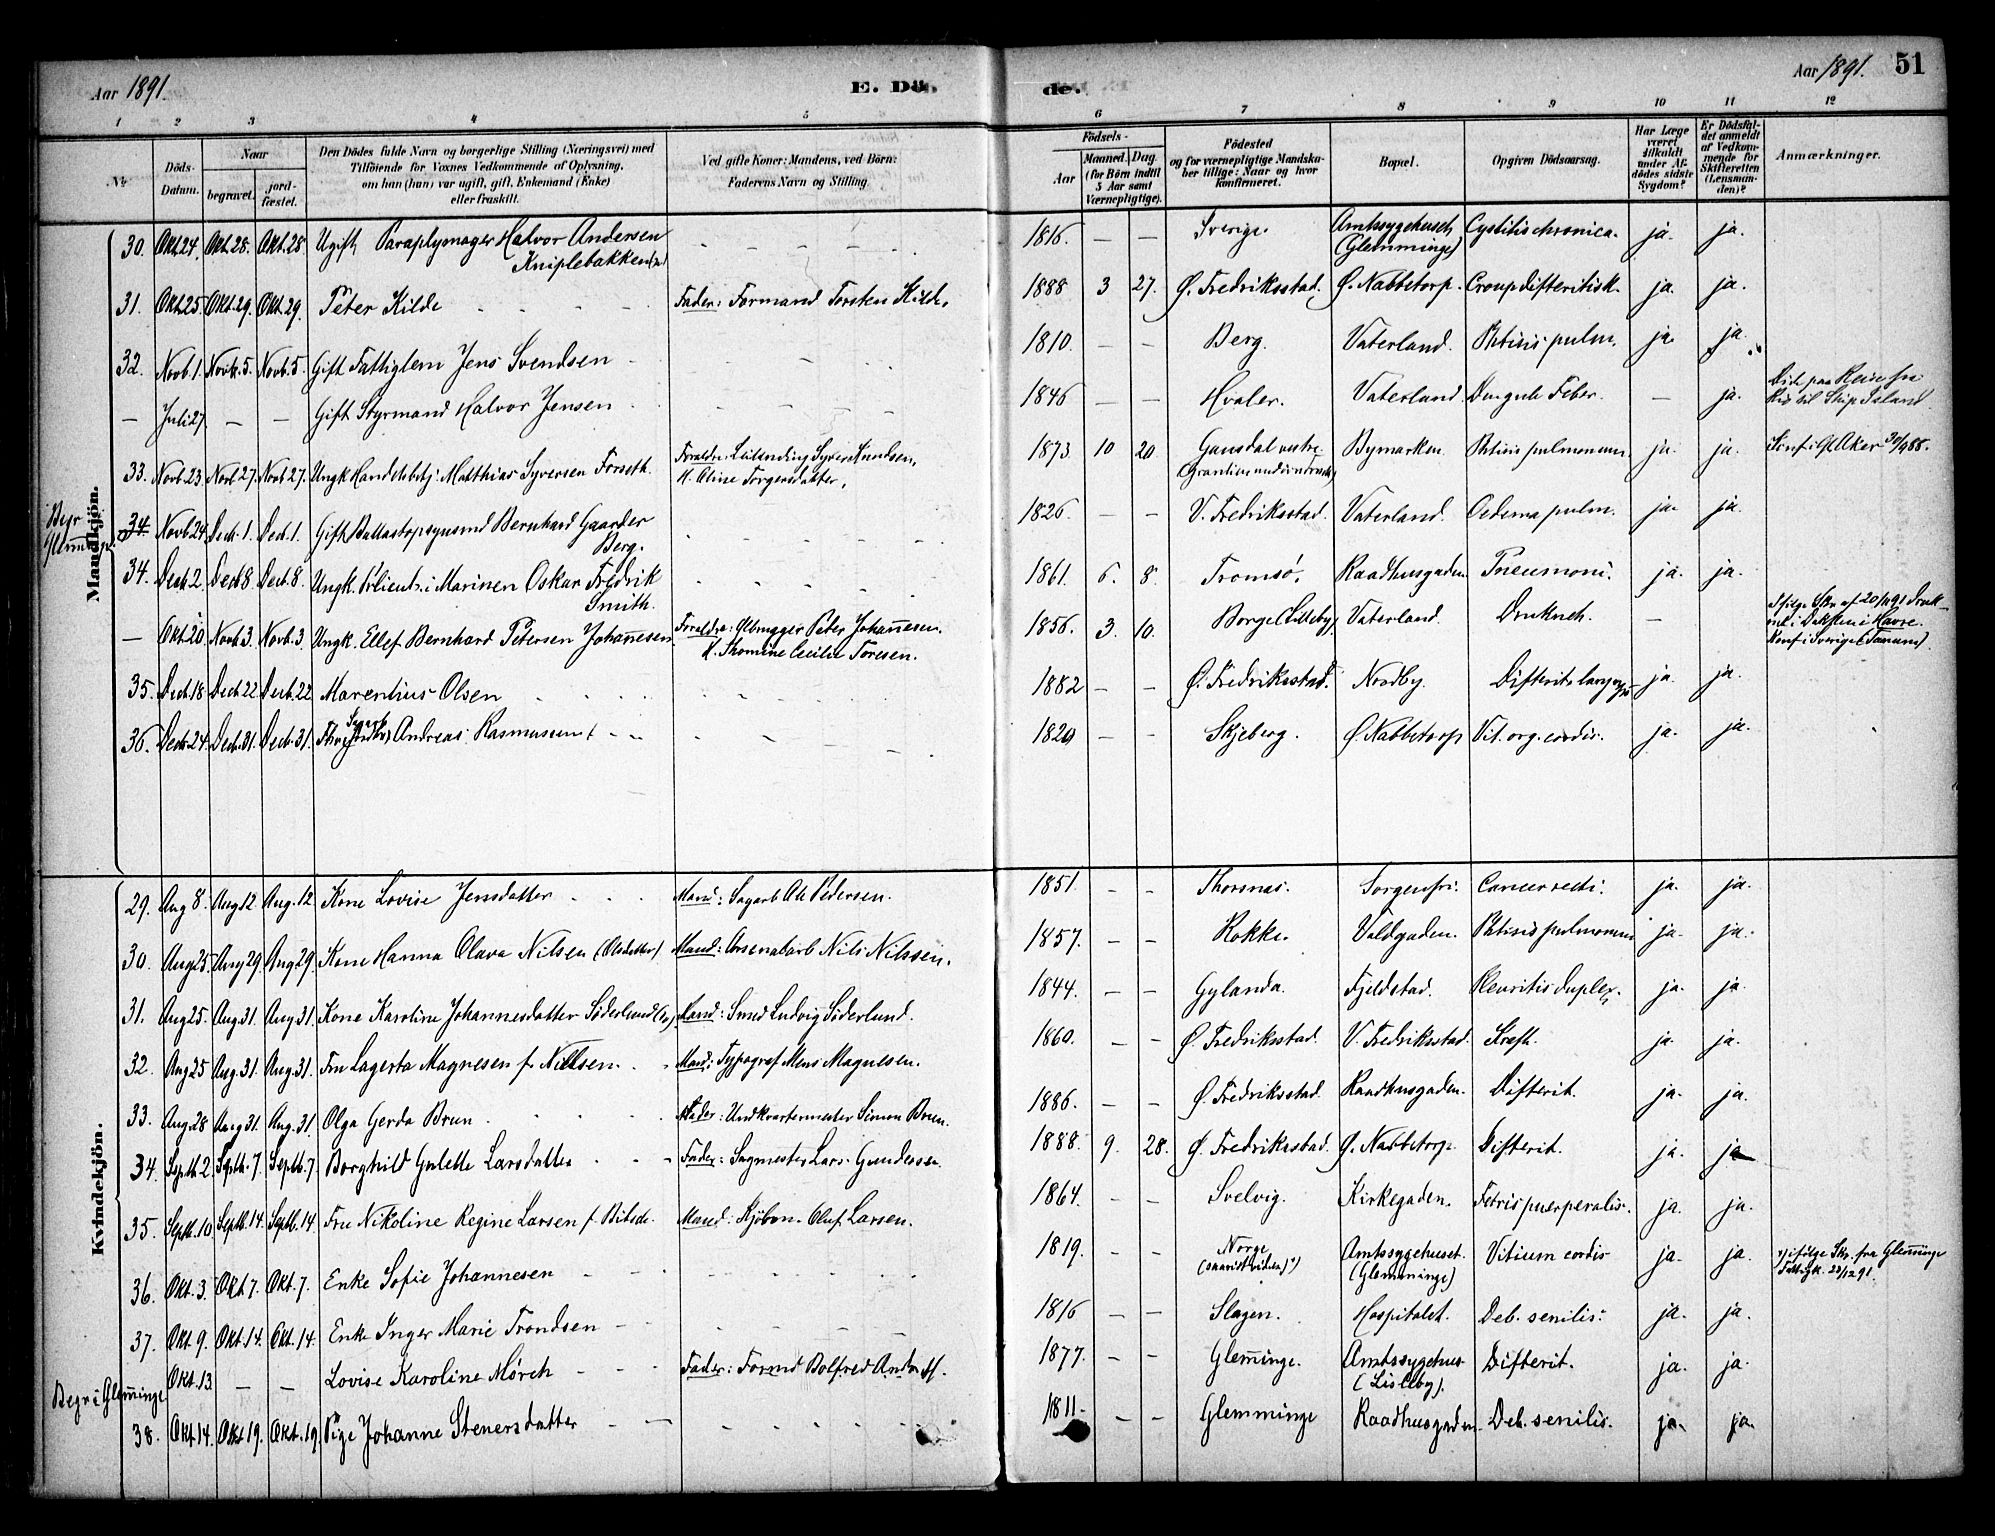 Aar 1891. E. Dö- de. Aar 1891. 51
1 2 3 4 5 6 7 8 9 10 11 12
No. Döds-Datum. Naar begravet. jord-fæstet. Den Dödes fulde Navn og borgerlige Stilling (Næringsvei) med Tilföiende for Voxnes Vedkommende af Oplysning, om han (hun) var ugift, gift, Enkemand (Enke) eller fraskilt. Ved gifte Koner: Mandens, ved Börn: Faderens Navn og Stilling. Födsels- Aar Maaned. Dag. (for Börn indtil 5 Aar samt Værnepligtige). Födested og for værnepligtige Mandskaber tillige: Naar og hvor konfirmeret. Bopæl. Opgiven Dödsaarsag. Har Læge været tilkaldt under Afdödes sidste Sygdom? Er Dödsfaldet anmeldt af Vedkommende for Skifteretten (Lensmanden)? Anmærkninger.
Mandkjön.
30. Okt. 24. Okt. 28. Okt. 28 Ugift Paraplymager Halvor Andersen Kniplebakken 1816. — — Sverige. Amtssygehuset (Glemminge) Cystitis chronica. ja. ja.
31. Okt. 25 Okt. 29. Okt. 29. Peter Kilde Fader: Formand Torsten Kilde. 1888 3 27. Ø. Fredriksstad. Ø. Nabbetorp. Croup difteritisk. ja. ja.
32. Novb. 1. Novb. 5. Novb. 5. Gift Fattiglem Jens Svendsen 1810. — — Berg. Vaterland. Phtisis pulm. ja. ja.
— Juli 27. — — Gift Styrmand Halvor Jensen 1846 — — Hvaler. Vaterland. Den gule Feber. — ja. Døde paa Reise fra Rio til Ship Island.
33. Novb. 23. Novb. 27. Novb. 27. Ungk. Handelsbetj. Matthias Syversen Forseth. Forældre: Syver Knudsen, H. Aline Torgersdatter. 1873. 10 20 Gausdal vestre Bymarken. Phtisis pulmonum ja. ja. Konf. i Gl. Aker 30/9 88.
Begr. Glemminge
34 Novb. 24. Decb. 1. Decb. 1. Gift Ballastopsynsmd Bernhard Gaarder Berg. 1826. — — V. Fredriksstad. Vaterland. Oedema pulm. ja. ja.
34. Decb. 2. Decb 8. Decb. 8. Ungk. i Marinen Oskar Fredrik Smith. 1861. 6. 8. Tromsø. Raadhusgaden. Pneumoni. ja. ja.
— Okt. 20 Novb. 3. Novb. 3. Ungk. Ellef Bernhard Petersen Johannesen. Forældre: Peter Johannesen. H. Thomine Cecilie Toresen. 1856. 3. 10. Borge (Lilleby) Vaterland. Druknet. — Ifølge Skr. af 20/10 91 i Havre. Konf. i Sverige
35. Decb. 18 Decb. 22 Decb. 22. Marentius Olsen 1882 — — Ø. Fredriksstad. Nordby. Difterit laryngis ja. ja.
36. Decb. 24. Decb. 31. Decb. 31. Andreas Rasmussen 1820 — — Skjeberg. Ø. Nabbetorp Vit. org. cordis. ja. ja.
Kvindekjön.
29. Aug 8. Aug 12. Aug. 12 Kone Lovise Jensdatter Mand: Sagarb. Ole Pedersen. 1851. — — Thorsnæs. Sorgenfri. Cancer recti. ja. ja.
30. Aug 25. Aug 29. Aug 29. Kone Hanna Olava Nilsen (Olsdatter) Mand: Arsenalarb Nils Nilssen. 1857. — — Rokke. Voldgaden. Phtisis pulmonum ja. ja.
31. Aug 25. Aug. 31. Aug 31. Kone Karoline Johannesdatter Söderlund Mand: Smed Ludvig Söderlund. 1844. — — Gylanda. Fjeldstad. Pleuritis duplex. ja. ja.
32. Aug 25 Aug. 31. Aug. 31. Fru Lagerta Magnesen f. Nilsen. Mand: Typograf Mons Magnesen. 1860. — — Ø. Fredriksstad. V. Fredriksstad. Kræft. ja. ja.
33. Aug 28 Aug 31. Aug. 31. Olga Gerda Brun Fader: Undkvartermester Simon Brun. 1886. — — Ø. Fredriksstad. Raadhusgaden. Difterit. ja. ja.
34. Septb. 2 Septb. 7. Septb. 7. Borghild Gulette Larsdatter Fader: Sagmester Lars Gundersen. 1888 9. 28. Ø. Fredriksstad. Ø. Nabbetorp. Difterit. ja. ja
35. Septb. 10 Septb. 14. Septb. 14. Fru Nikoline Regine Larsen f. Mand: Kjøbm. Oluf Larsen. 1864. — — Svelvig. Kirkegaden. Febris puerperalis. ja. ja.
36. Okt. 3. Okt 7. Okt. 7. Enke Sofie Johannesen 1819. — — Norge Amtssygehuset. (Glemminge) Vitium cordis ja. ja. ifølge Skr. fra Glemminge Fattigk. 23/12 91.
37. Okt. 9. Okt. 14. Okt. 14. Enke Inger Marie Trondsen 1816 — — Slagen. Hospitalet. Deb. senilis. ja. ja.
Begr. i Glemminge
Okt. 13. — — Lovise Karoline Mörch Fader: Formd Bolfred 1877. — — Glemminge. Amtssygehus (Lisleby). Difterit. ja. ja.
38. Okt. 14. Okt. 19. Okt. 19 Pige Johanne Stenersdatter 1811. — — Glemminge Raadhusgaden Deb. senilis. ja. ja.